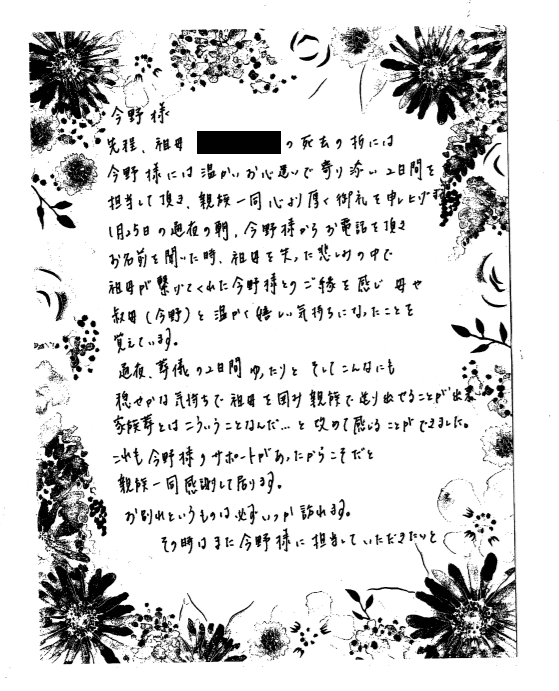 今野様
先程、祖母 の死去の折には
今野様には温かいお心遣いで寄り添い2日間を
担当して頂き、親族一同心より厚く御礼を申し上げます。
1月25日の通夜の朝、今野様からお電話を頂き
お名前を聞いた時、祖母を失った悲しみの中で
祖母が繋げてくれた今野様とのご縁を感じ 母や
叔母(今野)と温かく嬉しい気持ちになったことを
覚えています。
通夜、葬儀の2日間ゆったりと そしてこんなにも
穏やかな気持ちで祖母を囲み親族で送り出せることが出来
家族葬とはこういうことなんだ…と改めて感じることができました。
これも今野様のサポートがあったからこそだと
親族一同感謝して居ります。
お別れというものは必ずいつか訪れます。
その時はまた今野様に担当していただきたいと